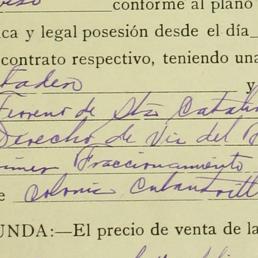 conforme al plano
ca y legal posesión desde el día
contrato respectivo, teniendo una
y
Terreno de Sta Catali
Derecho de Via del
Fraccionamiento
e Colonia
UNDA:—El precio de venta de la